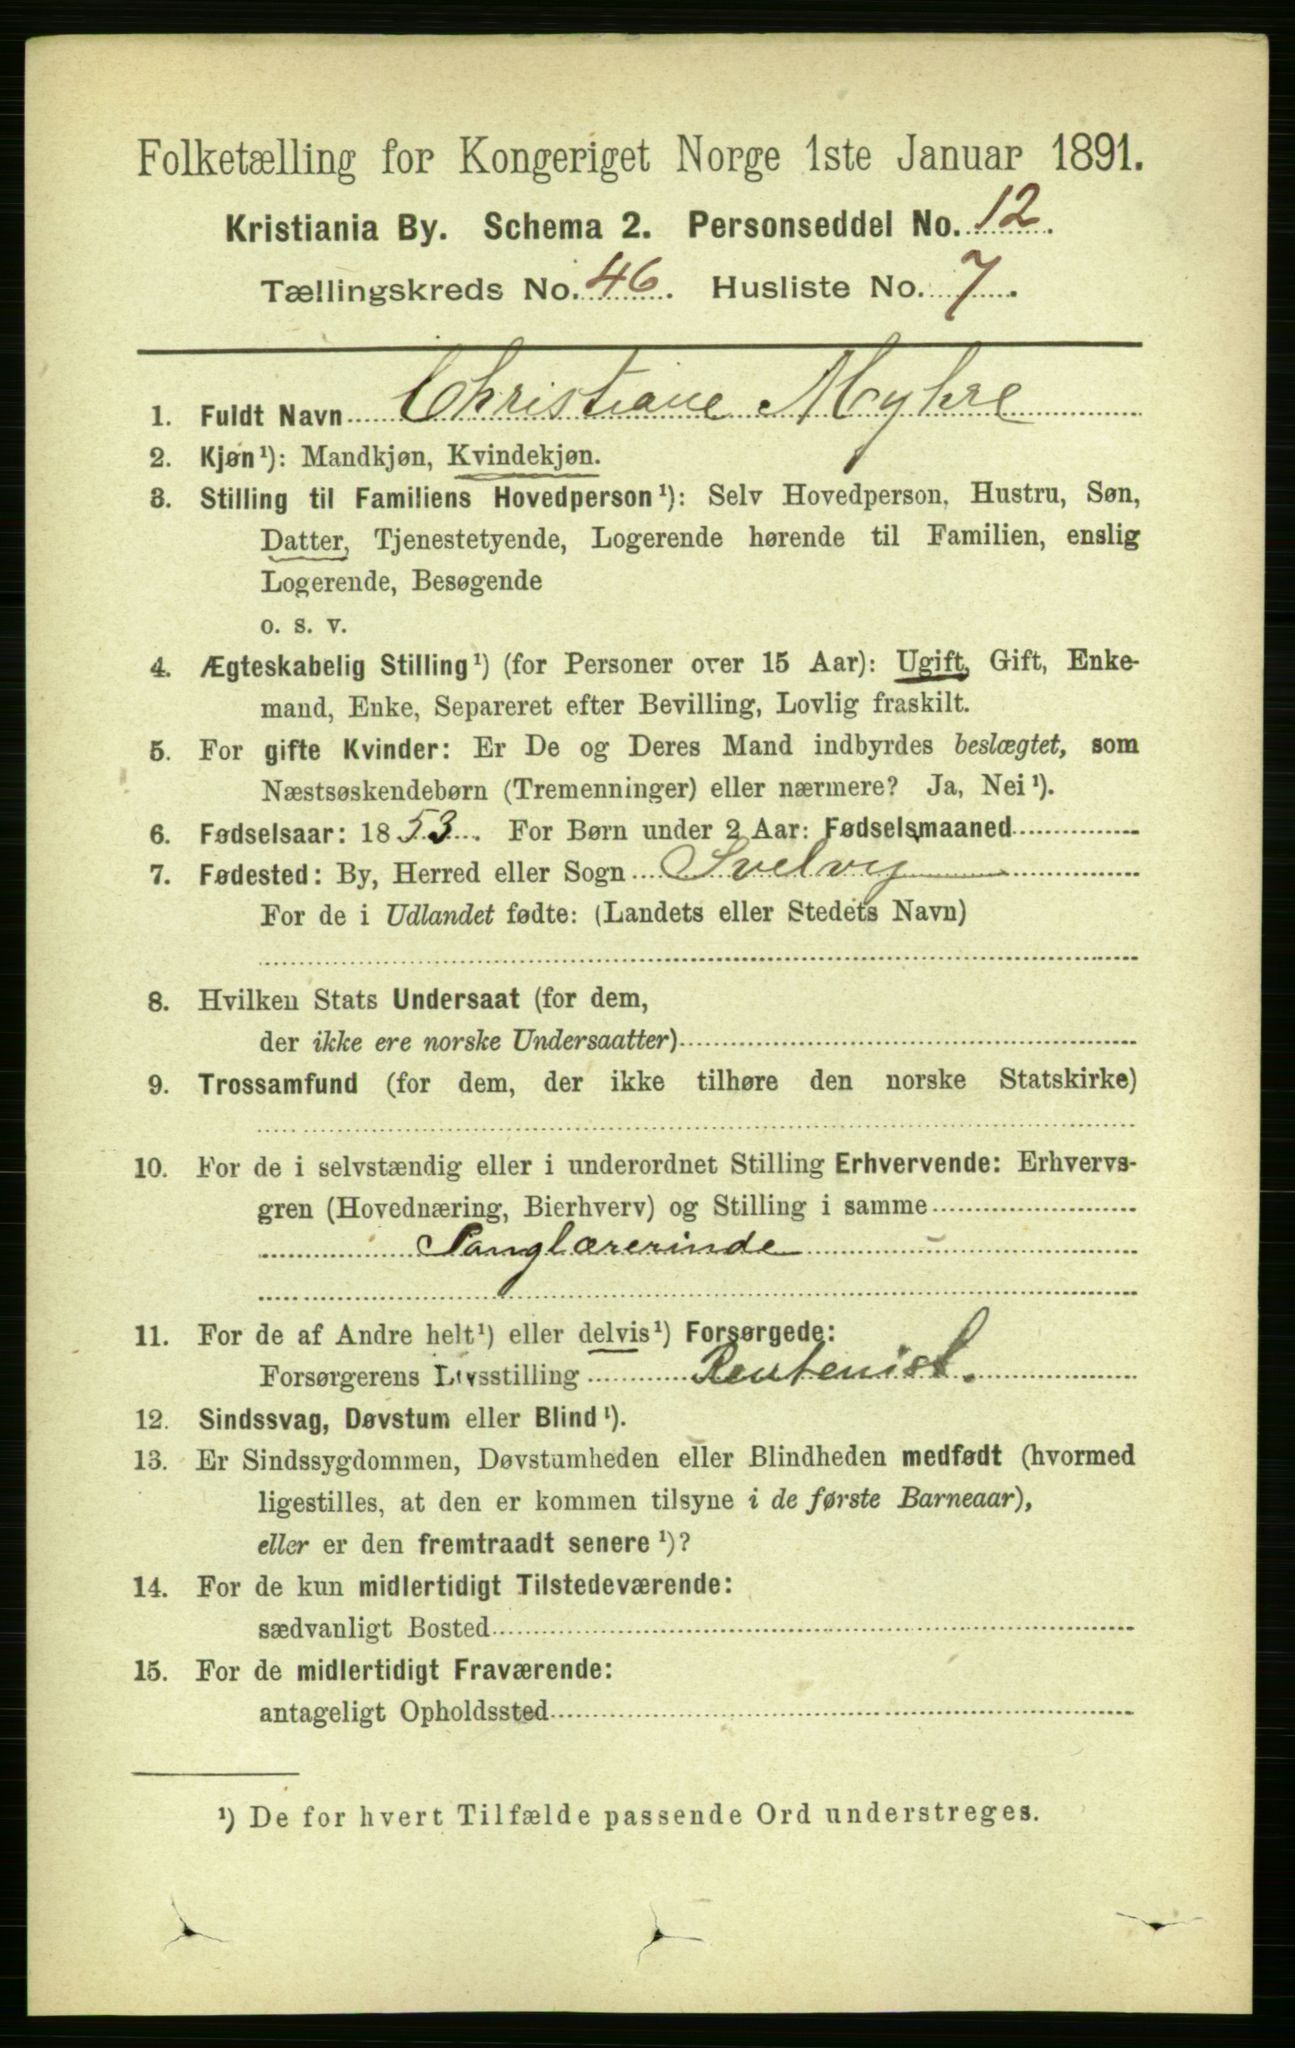 Folketælling for Kongeriget Norge 1ste Januar 1891.
Kristiania By. Schema 2. Personseddel No. 12.
Tællingskreds No. 46. Husliste No. 7.
1. Fuldt Navn Christiane Myhre
2. Kjøn¹): Mandkjøn, Kvindekjøn.
3. Stilling til Familiens Hovedperson¹): Selv Hovedperson, Hustru, Søn,
Datter, Tjenestetyende, Logerende hørende til Familien, enslig
Logerende, Besøgende
o. s. v.
4. Ægteskabelig Stilling¹) (for Personer over 15 Aar): Ugift, Gift, Enke-
mand, Enke, Separeret efter Bevilling, Lovlig fraskilt.
5. For gifte Kvinder: Er De og Deres Mand indbyrdes beslægtet, som
Næstsøskendebørn (Tremenninger) eller nærmere? Ja, Nei¹).
6. Fødselsaar: 1853. For Børn under 2 Aar: Fødselsmaaned
7. Fødested: By, Herred eller Sogn Svelvig
For de i Udlandet fødte: (Landets eller Stedets Navn)
8. Hvilken Stats Undersaat (for dem,
der ikke ere norske Undersaatter)
9. Trossamfund (for dem, der ikke tilhøre den norske Statskirke)
10. For de i selvstændig eller i underordnet Stilling Erhvervende: Erhvervs-
gren (Hovednæring, Bierhverv) og Stilling i samme
Sanglærerinde
11. For de af Andre helt¹) eller delvis¹) Forsørgede:
Forsørgerens Livsstilling Rentenist.
12. Sindssvag, Døvstum eller Blind¹).
13. Er Sindssygdommen, Døvstumheden eller Blindheden medfødt (hvormed
ligestilles, at den er kommen tilsyne i de første Barneaar),
eller er den fremtraadt senere¹)?
14. For de kun midlertidigt Tilstedeværende:
sædvanligt Bosted
15. For de midlertidigt Fraværende:
antageligt Opholdssted
¹) De for hvert Tilfælde passende Ord understreges.